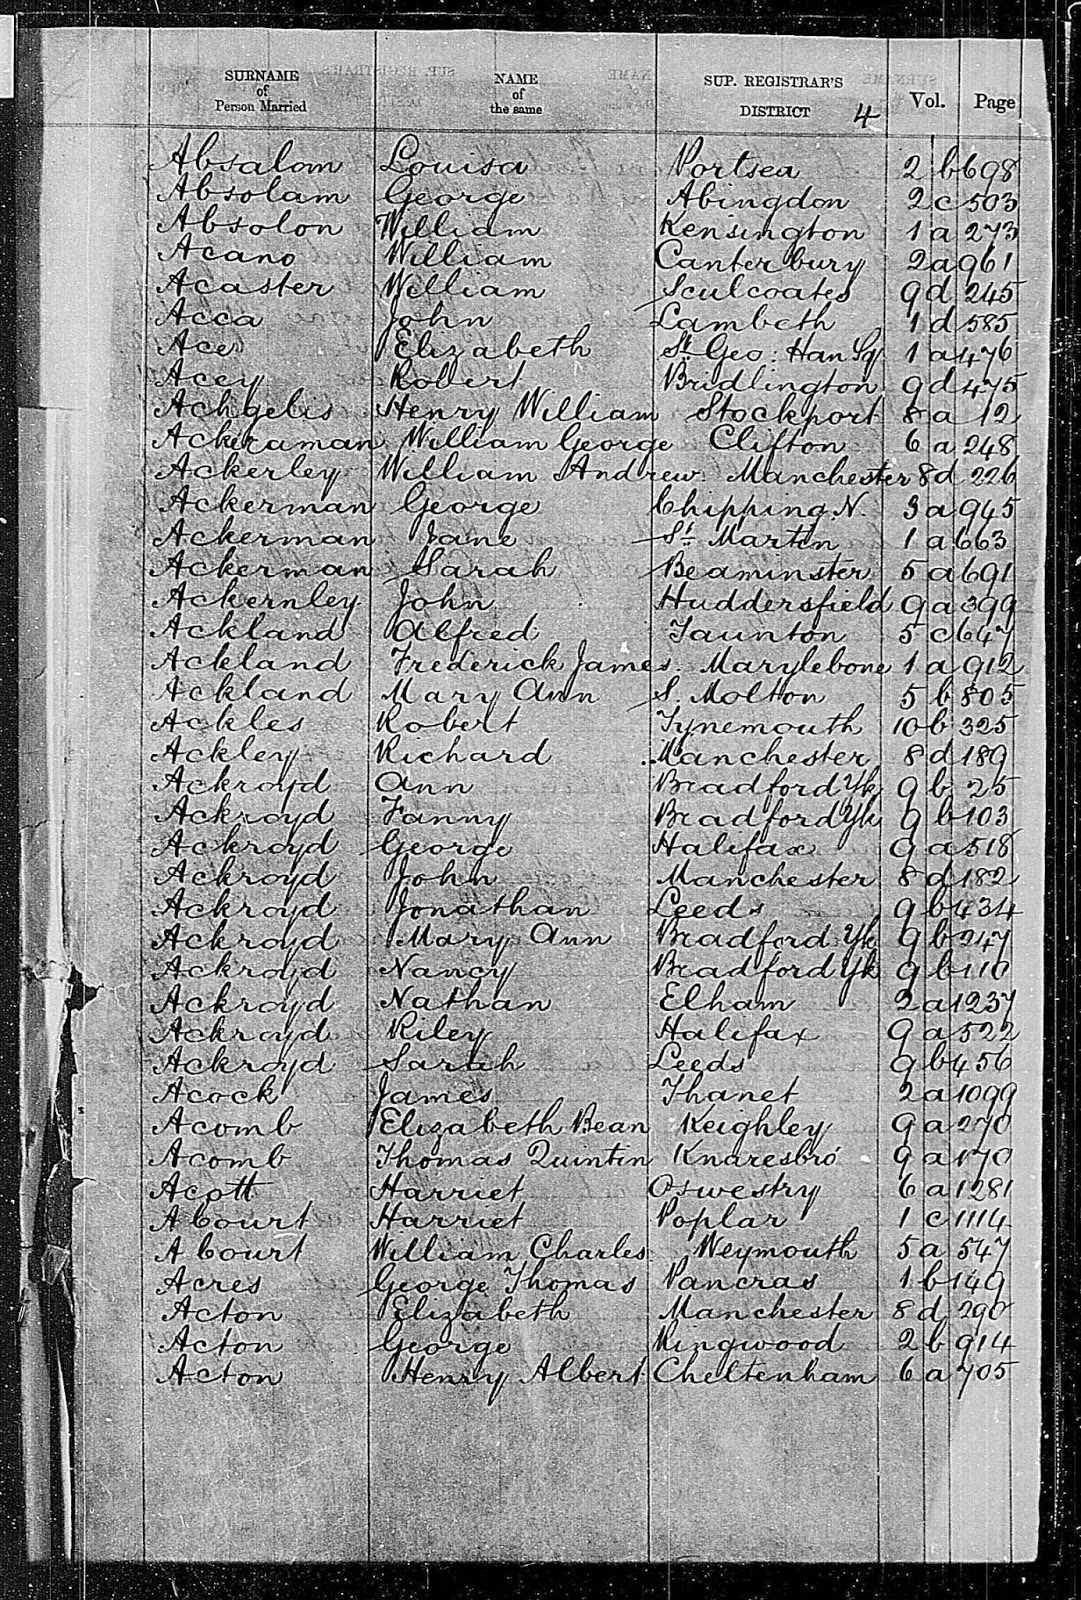 SURNAME of Person Married NAME of the same SUP. REGISTRAR'S DISTRICT 4 Vol. Page
Absalom Louisa Portsea 2 b 698
Absolam George Abingdon 2 c 503
Absolon William Kensington 1 a 273
Acano William Canterbury 2 a 961
Acaster William Sculcoates 9 d 245
Acca John Lambeth 1 d 585
Ace Elizabeth St. Geo: Han Sq 1 a 476
Acey Robert Bridlington 9 d 475
Achgelis Henry William Stockport 8 a 12
Ackeraman William George Clifton 6 a 248
Ackerley William Andrew. Manchester 8 d 226
Ackerman George Chipping N. 3 a 945
Ackerman Jane St. Martin 1 a 663
Ackerman Sarah Beaminster 5 a 691
Ackernley John Huddersfield 9 a 399
Ackland Alfred Taunton 5 c 647
Ackland Frederick James. Marylebone 1 a 912
Ackland Mary Ann S. Molton 5 b 805
Ackles Robert Tynemouth 10 b 325
Ackley Richard Manchester 8 d 189
Ackroyd Ann Bradford Yk 9 b 25
Ackroyd Fanny Bradford Yk 9 b 103
Ackroyd George Halifax 9 a 518
Ackroyd John Manchester 8 d 182
Ackroyd Jonathan Leeds 9 b 434
Ackroyd Mary Ann Bradford Yk 9 b 247
Ackroyd Nancy Bradford Yk 9 b 110
Ackroyd Nathan Elham 2 a 1237
Ackroyd Riley Halifax 9 a 522
Ackroyd Sarah Leeds 9 b 456
Acock James Thanet 2 a 1099
Acomb Elizabeth Bean Keighley 9 a 270
Acomb Thomas Quintin Knaresbro' 9 a 170
Acott Harriet Oswestry 6 a 1281
A Court Harriet Poplar 1 c 1114
A Court William Charles Weymouth 5 a 547
Acres George Thomas Pancras 1 b 149
Acton Elizabeth Manchester 8 d 290
Acton George Ringwood 2 b 914
Acton Henry Albert Cheltenham 6 a 705